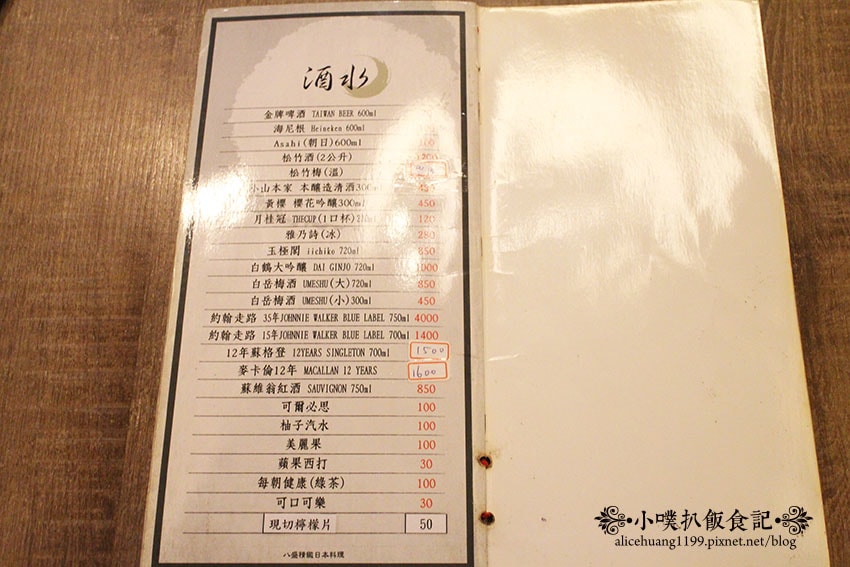 酒水
金牌啤酒 TAIWAN BEER 600ml
海尼根 Heineken 600ml
Asahi(朝日)600ml
松竹酒(2公升) 1200
松竹梅(溫)
小山本家 本釀造清酒300ml
黃櫻 櫻花吟釀300ml 450
月桂冠 THECUP(1口杯) 120
雅乃詩(冰) 280
玉極閣 iichiko 720ml 850
白鶴大吟釀 DAI GINJO 720ml 1000
白岳梅酒 UMESHU(大)720ml 850
白岳梅酒 UMESHU(小)300ml 450
約翰走路 35年JOHNNIE WALKER BLUE LABEL 750ml 4000
約翰走路 15年JOHNNIE WALKER BLUE LABEL 700ml 1400
12年蘇格登 12YEARS SINGLETON 700ml 1500
麥卡倫12年 MACALLAN 12 YEARS 1600
蘇維翁紅酒 SAUVIGNON 750ml 850
可爾必思 100
柚子汽水 100
美麗果 100
蘋果西打 30
每朝健康(綠茶) 100
可口可樂 30
現切檸檬片 50
小噗扒飯食記
alicehuang1199.pixnet.net/blog